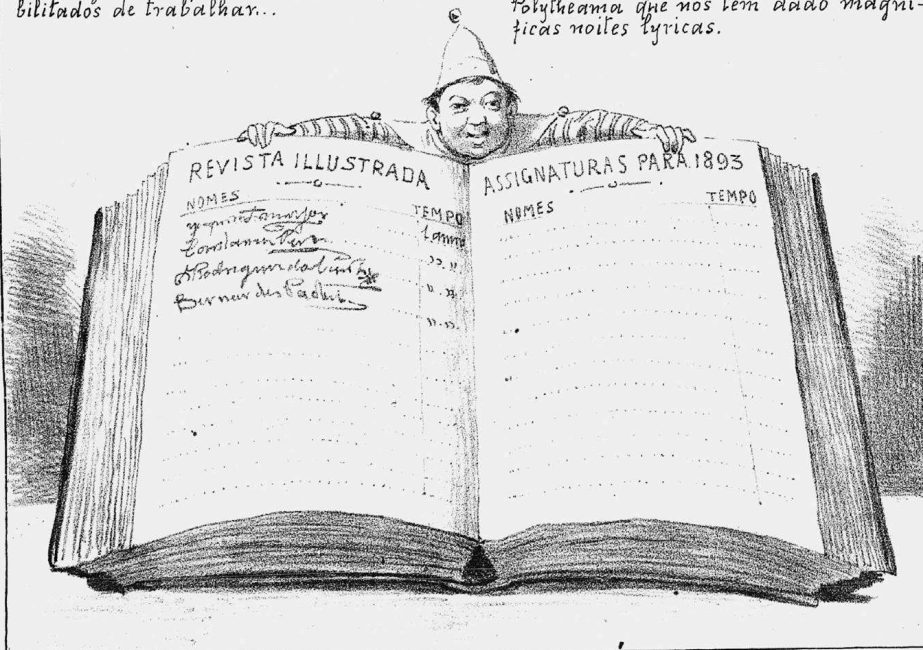 bilitados de trabalhar...
Polytheama que nos tem dado magni-
ficas noites lyricas.
REVISTA ILLUSTRADA
NOMES
TEMPO
1 anno
" "
" "
" "
Bernardes
ASSIGNATURAS PARA 1893
NOMES
TEMPO